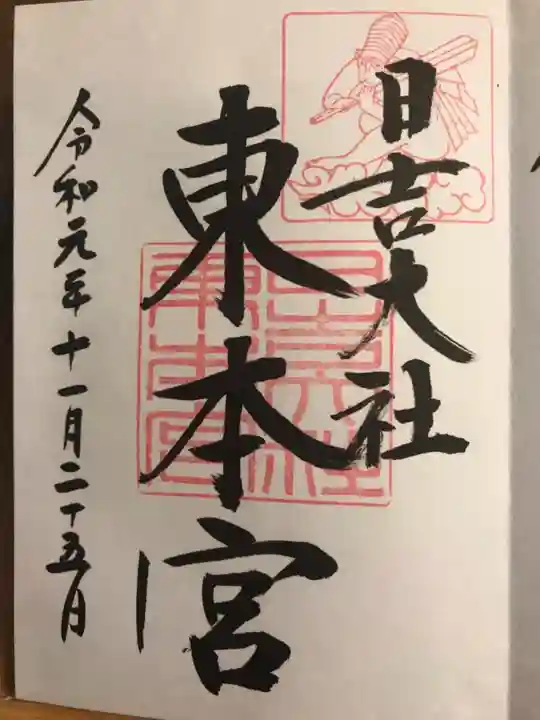 日吉大社
東本宮
令和元年十一月二十五日
日吉大社
東本宮